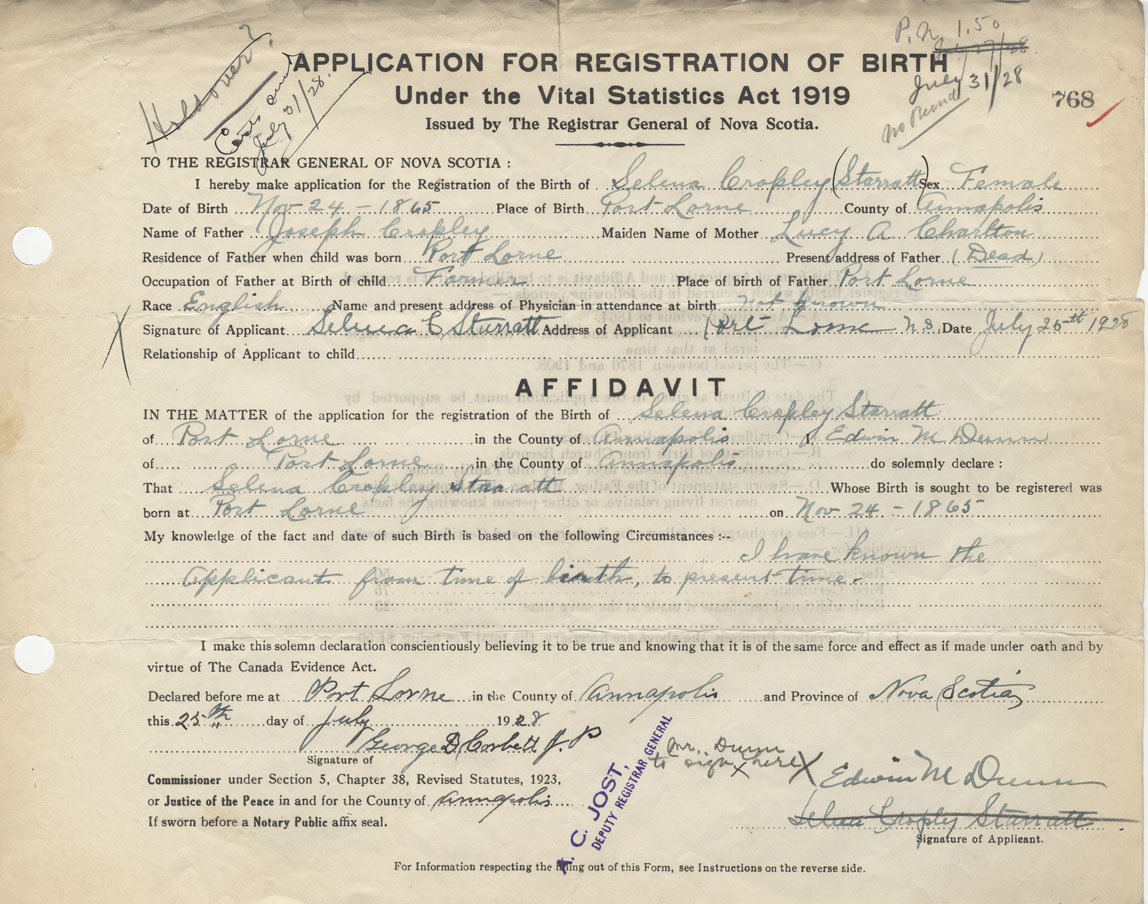 P.N. 1.50
July 31/28
no record
768
APPLICATION FOR REGISTRATION OF BIRTH
Under the Vital Statistics Act 1919
Issued by The Registrar General of Nova Scotia.
July 31/28.
TO THE REGISTRAR GENERAL OF NOVA SCOTIA :
I hereby make application for the Registration of the Birth of Selena Cropley (Starratt) Sex Female
Date of Birth Nov 24 - 1865 Place of Birth Port Lorne County of Annapolis
Name of Father Joseph Cropley Maiden Name of Mother Lucy A Charlton
Residence of Father when child was born Port Lorne Present address of Father (Dead)
Occupation of Father at Birth of child Farmer Place of birth of Father Port Lorne
Race English Name and present address of Physician in attendance at birth not known
Signature of Applicant Selena C Starratt Address of Applicant Port Lorne N.S. Date July 25th 1928
Relationship of Applicant to child
AFFIDAVIT
IN THE MATTER of the application for the registration of the Birth of Selena Cropley Starratt
of Port Lorne in the County of Annapolis I, Edwin M Dunn
of Port Lorne in the County of Annapolis do solemnly declare :
That Selena Cropley Starratt Whose Birth is sought to be registered was
born at Port Lorne on Nov 24 - 1865
My knowledge of the fact and date of such Birth is based on the following Circumstances :--
I have known the
Applicant from time of birth, to present time.
I make this solemn declaration conscientiously believing it to be true and knowing that it is of the same force and effect as if made under oath and by
virtue of The Canada Evidence Act.
Declared before me at Port Lorne in the County of Annapolis and Province of Nova Scotia
this 25th day of July 1928
George D Corbett J. P
Signature of
Commissioner under Section 5, Chapter 38, Revised Statutes, 1923,
or Justice of the Peace in and for the County of Annapolis
If sworn before a Notary Public affix seal.
A. C. JOST,
DEPUTY REGISTRAR GENERAL
Mr. Dunn
to sign here X
Edwin M Dunn
Selena Cropley Starratt
Signature of Applicant.
For Information respecting the filling out of this Form, see Instructions on the reverse side.